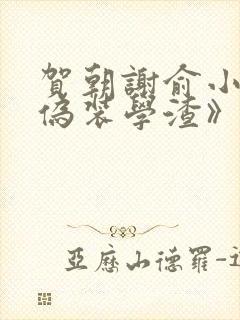 賀朝謝俞小
偽裝學渣》
亞歷山德羅-